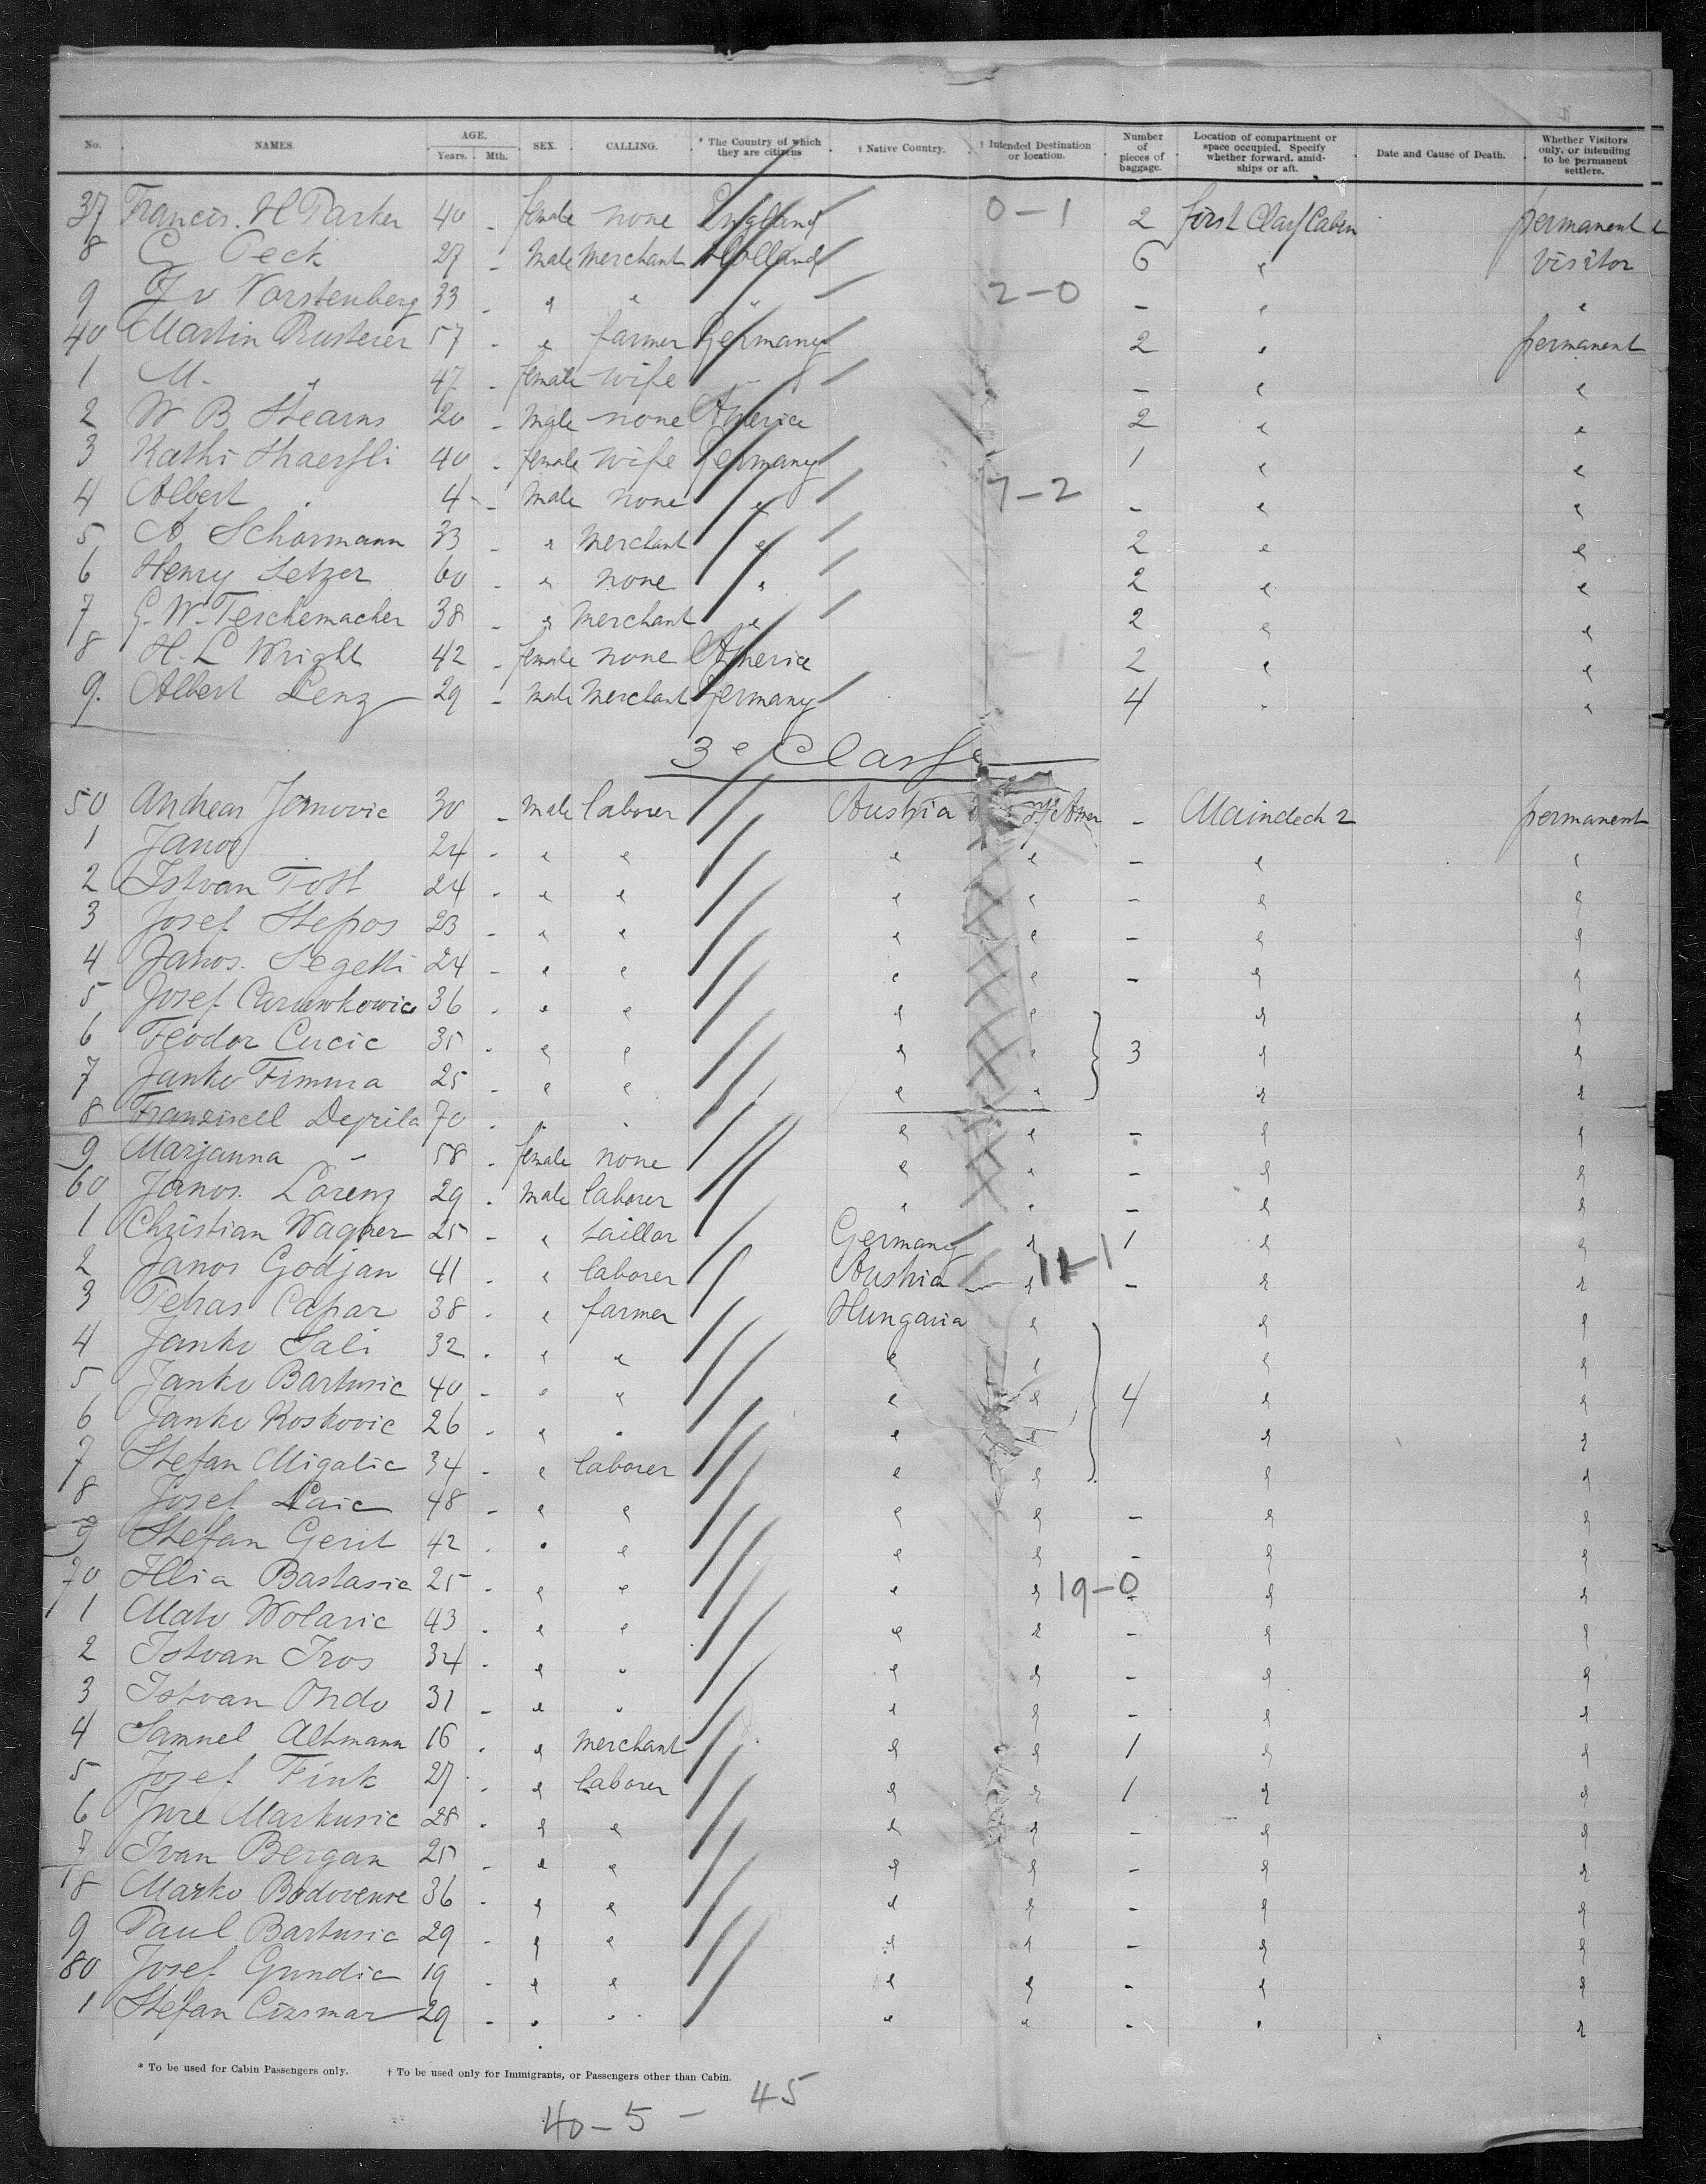 No. NAMES. AGE. Years. Mth. SEX. CALLING. * The Country of which they are citizens † Native Country. † Intended Destination or location. Number of pieces of baggage. Location of compartment or space occupied. Specify whether forward, amidships or aft. Date and Cause of Death. Whether Visitors only, or intending to be permanent settlers.
37 Francis. H Parker 40 - female none England 0-1 2 first Class Cabin permanent
8 G Peck 27 - Male Merchant Holland 6 " visitor
9 J v Vorstenberg 33 - " " " 2-0 - " "
40 Martin Rusterer 57 - " farmer Germany 2 " permanent
1 M. " 47 - female wife - - " "
2 W B Stearns 20 - Male none America 2 " "
3 Kathi 40 - female wife Germany 1 " "
4 Albert " 4 - Male none " 7-2 - " "
5 A. Schormann 33 - " Merchant " 2 " "
6 Henry Setzer 60 - " none " 2 " "
7 G. W. Teschemacher 38 - " Merchant " 2 " "
8 H. L Wright 42 - female none America 2 " "
9. Albert Lenz 29 - Male Merchant Germany 4 " "
3e Classe
50 Andreas Jomovic 30 - Male laborer Austria - Maindeck 2 permanent
1 Janos 24 - " " " " - " "
2 Istvan Tott 24 - " " " " - " "
3 Josef Stepos 23 - " " " " - " "
4 Janos. Segetti 24 - " " " " - " "
5 Josef 36 - " " " " " "
6 Feodor Cucic 35 - " " " " 3 " "
7 Janko Fimma 25 - " " " " " "
8 70 - " " " " - " "
9 Marjanna - 58 - female none " " - " "
60 Janos. Lorenz 29 - Male laborer " " - " "
1 Christian Wagner 25 - " taillor Germany " 1 " "
2 Janos Godjan 41 - " laborer Austria " 11-1 - " "
3 Petras Capar 38 - " farmer Hungaria " " "
4 Janko Sali 32 - " " " " " "
5 Janko Bartusic 40 - " " " " 4 " "
6 Janko Roskovic 26 - " " " " " "
7 Stefan Migalic 34 - " laborer " " " "
8 Josef Laic 48 - " " " " - " "
9 Stefan Gerit 42 - " " " " - " "
70 Illia Bastasic 25 - " " " " 19-0 - " "
1 Mato Wolaric 43 - " " " " - " "
2 Istvan Iros 34 - " " " " - " "
3 Istvan Ondo 31 - " " " " - " "
4 Samuel Altmann 16 - " Merchant " " 1 " "
5 Josef Fink 27 - " laborer " " 1 " "
6 Jure Markusic 28 - " " " " - " "
7 Ivan Bergan 25 - " " " " - " "
8 Marko 36 - " " " " - " "
9 Paul Bartusic 29 - " " " " - " "
80 Josef Gundic 19 - " " " " - " "
1 Stefan Cizsmar 29 - " " " " - " "
* To be used for Cabin Passengers only. † To be used only for Immigrants, or Passengers other than Cabin.
40-5- 45